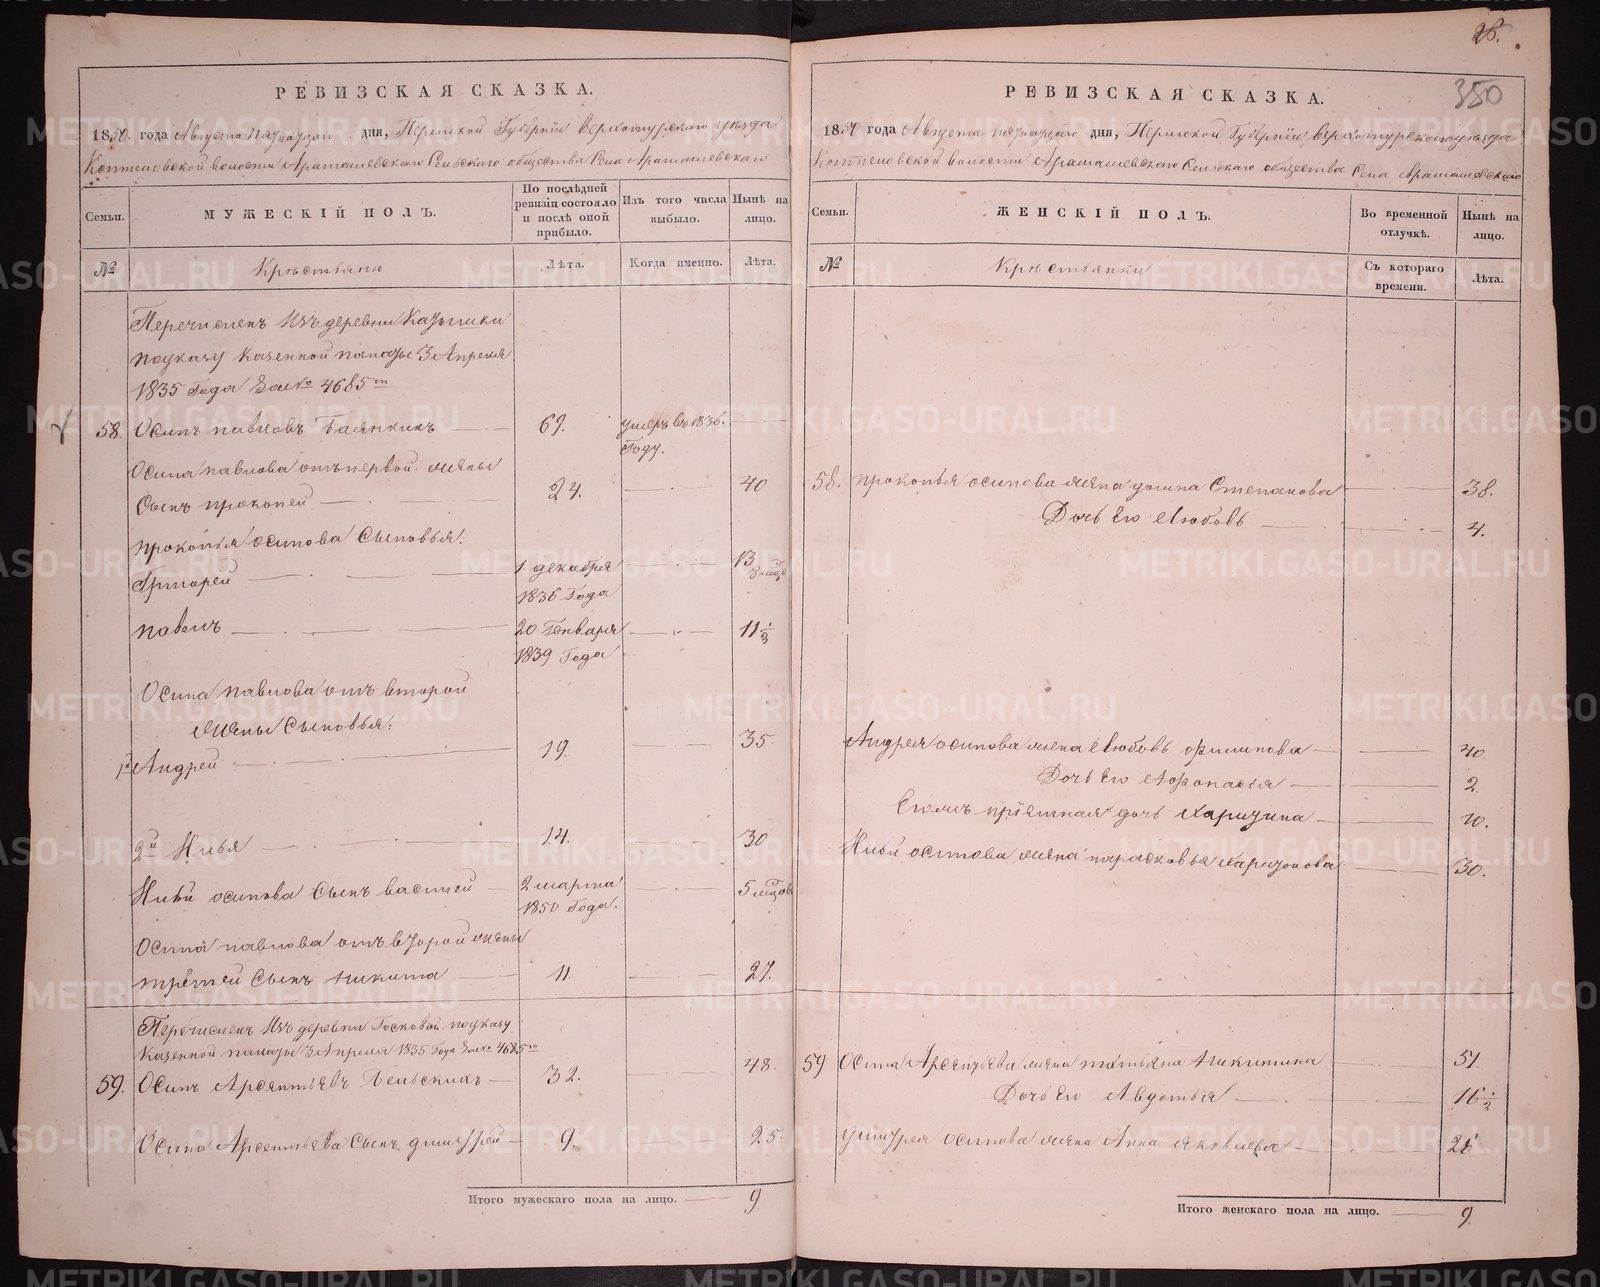 РЕВИЗСКАЯ СКАЗКА.
1850. года Августа пятнадцатаго дня, Пермской Губернiи Верхотурскаго уѣзда
Коптеловской волости Арамашевскаго Сельскаго общества Села Арамашевскаго
Семьи.
МУЖЕСКIЙ ПОЛЪ.
По послѣдней ревизiи состояло и послѣ оной прибыло.
Изъ того числа выбыло.
Нынѣ на лицо.
№
Крѣстьяни
Лѣта.
Когда именно.
Лѣта.
Перечисленъ Изъ деревни
по указу Казенной палаты 3 Апреля
1835 Года За № 4685m
58. Осипъ павловъ Баянкинъ 69. умеръ въ 1836. Году.
Осипа павлова отъ первой жены
Сынъ прокопей 24. 40
прокопья осипова Сыновья:
Григорей 1 декабря 1836 Года 13 8 мцов
павелъ 20 Генваря 1839 Года 11 1/2
Осипа павлова отъ второй
жены Сыновья:
1й Андрей 19. 35
2й Илья 14. 30
Ильи осипова Сынъ василей 2 марта 1850 Года. 5 мцов
Осипа павлова отъ второй жены
третей Сынъ никита 11 27.
Перечисленъ Изъ деревни Госковой по указу
Казенной палаты 3 Апреля 1835 Года За № 4685m
59. Осипъ Арсентьевъ Бельскихъ 32. 48.
Осипа Арсентьева Сынъ дмитрей 9. 25.
Итого мужескаго пола на лицо. 9.
26.
350
РЕВИЗСКАЯ СКАЗКА.
1850 года Августа пятнадцатаго дня, Пермской Губернiи верхотурскаго уѣзда
Коптеловской волости Арамашевскаго Сельскаго общества Села Арамашевскаго
Семьи.
ЖЕНСКIЙ ПОЛЪ.
Во временной отлучкѣ.
Нынѣ на лицо.
№
Крѣстьянки
Съ котораго времени.
Лѣта.
58. прокопья осипова жена домна Степанова 38.
Дочь Его Любовь 4.
Андрея осипова жена Любовь филипова 40
Дочь Его Афонасья 2
Егожъ прiемная дочь Харитина 10.
Ильи осипова жена парасковья Харитонова 30.
59 Осипа Арсентьева жена татьяна никитина 51.
Дочь Его Авдотья 16 1/2
дмитрея осипова жена Анна яковлева 26
Итого женскаго пола на лицо. 9.